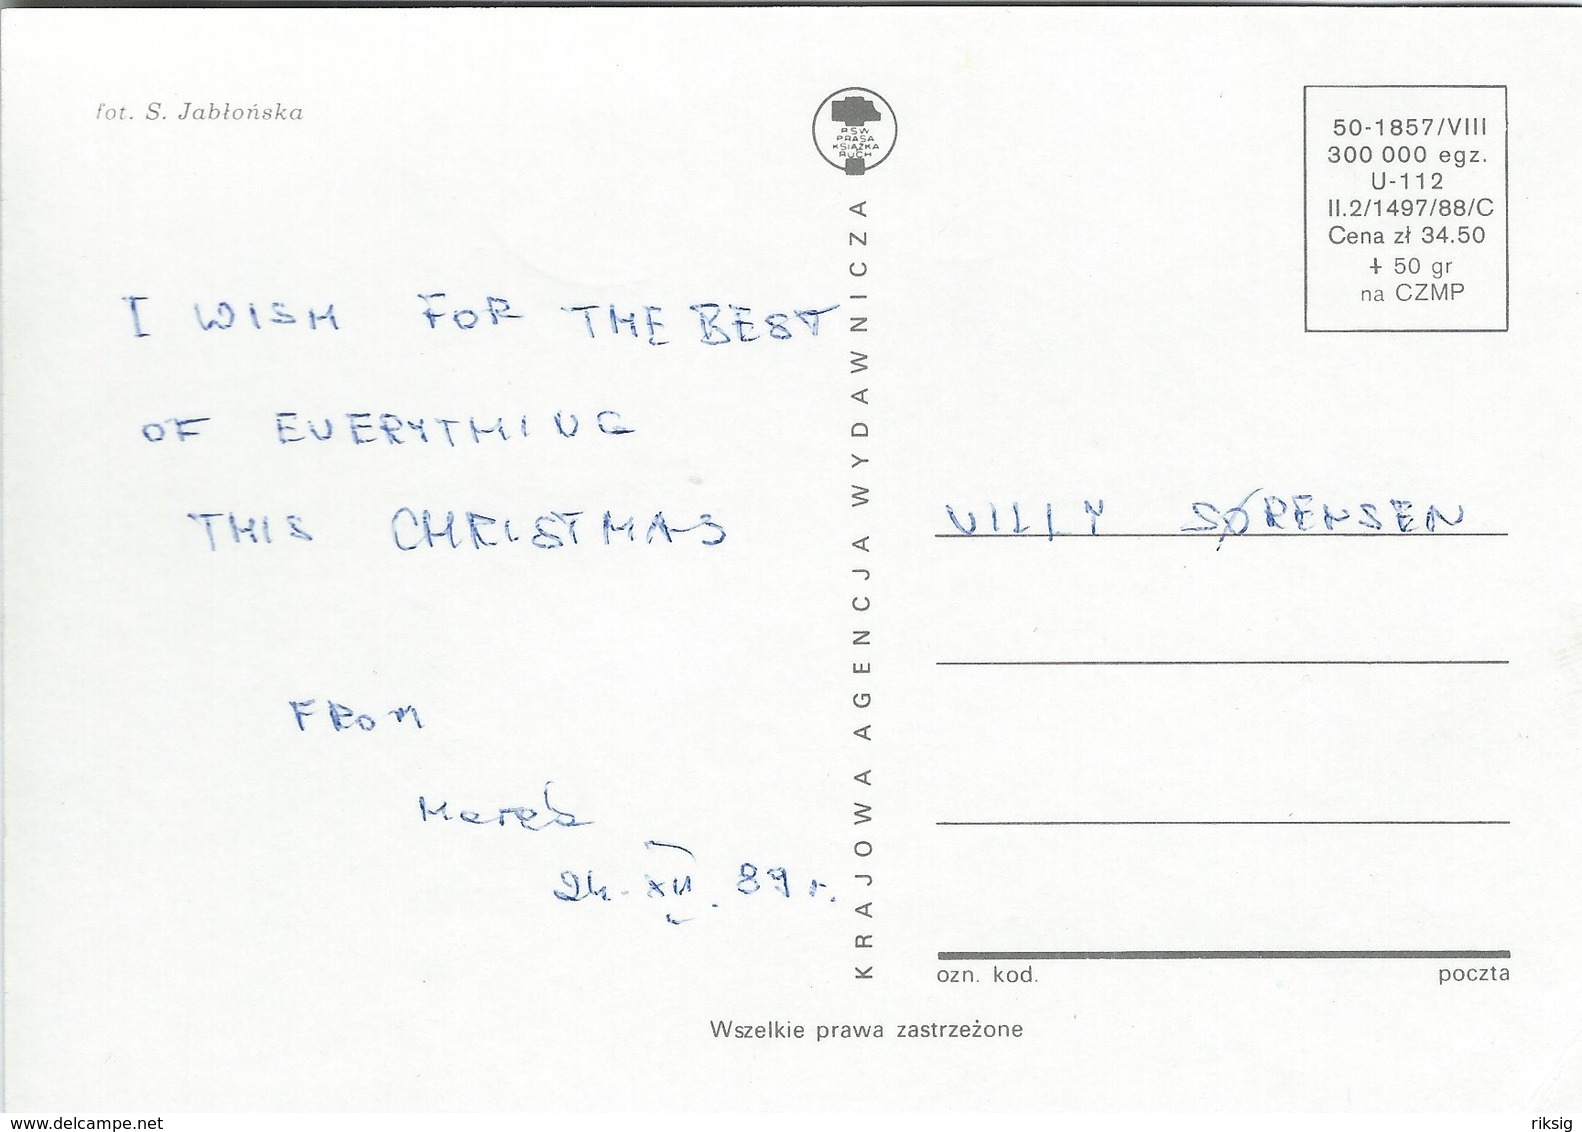 fot. S. Jabłońska
RSW
PRASA
KSIĄŻKA
RUCH
KRAJOWA AGENCJA WYDAWNICZA
50-1857/VIII
300 000 egz.
U-112
II.2/1497/88/C
Cena zł 34.50
+ 50 gr
na CZMP
I WISH FOR THE BEST
OF EVERYTHING
THIS CHRISTMAS
FROM
Marek
24. XII. 89 r.
VILLY SØRENSEN
ozn. kod.
poczta
Wszelkie prawa zastrzeżone
www.delcampe.net
riksig